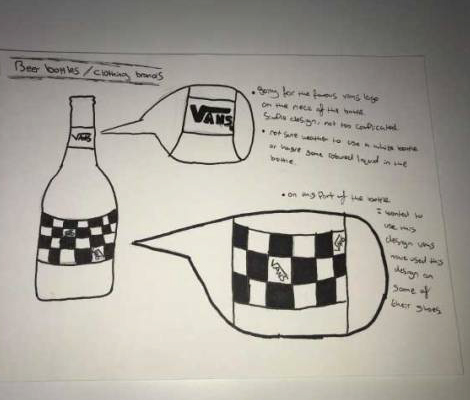 Beer bottles / clothing brands
VANS
VANS
• going for the famous vans logo
on the neck of the bottle.
design, not too complicated.
• not sure weather to use a white bottle
or have some coloured liquid in the
bottle.
• on this part of the bottle
I wanted to
use this
design vans
have used this
design on
some of
their shoes.
VANS